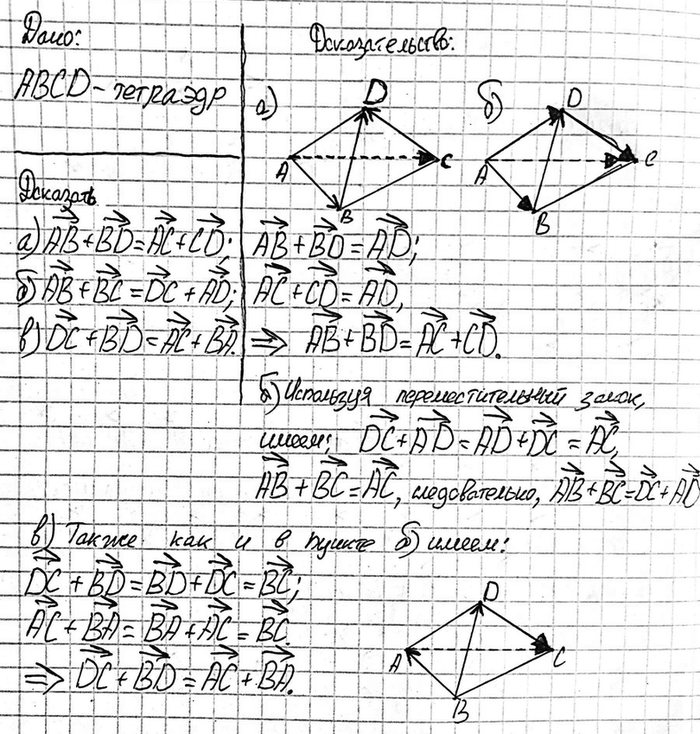 Дано:
ABCD – тетраэдр
Доказать
а) AB + BD = AC + CD;
б) AB + BC = DC + AD;
в) DC + BD = AC + BA.
Доказательство:
а)
D
A
C
B
б)
D
A
C
B
AB + BD = AD;
AC + CD = AD,
⇒ AB + BD = AC + CD.
б) Используя переместительный закон,
имеем; DC + AD = AD + DC = AC,
AB + BC = AC, следовательно, AB + BC = DC + AD
в) Также как и в пункте б) имеем:
DC + BD = BD + DC = BC;
AC + BA = BA + AC = BC
⇒ DC + BD = AC + BA.
D
A
C
B